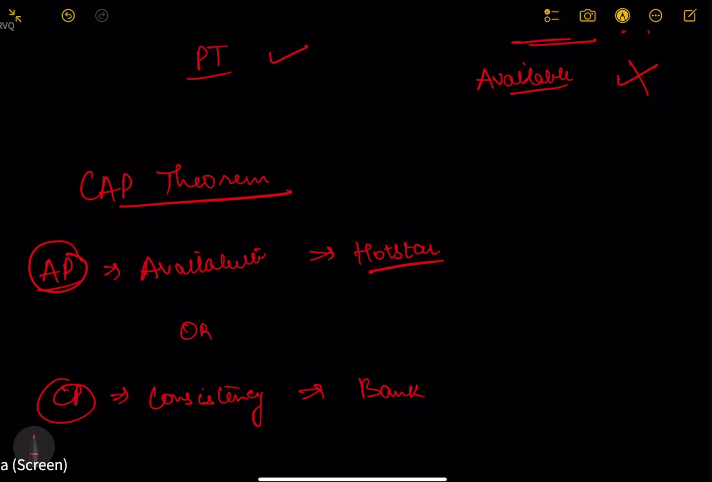 RVQ
PT ✓
Available
CAP Theorem
AP ⇒ Availability → Hotstar
OR
CP ⇒ Consistency → Bank
a (Screen)